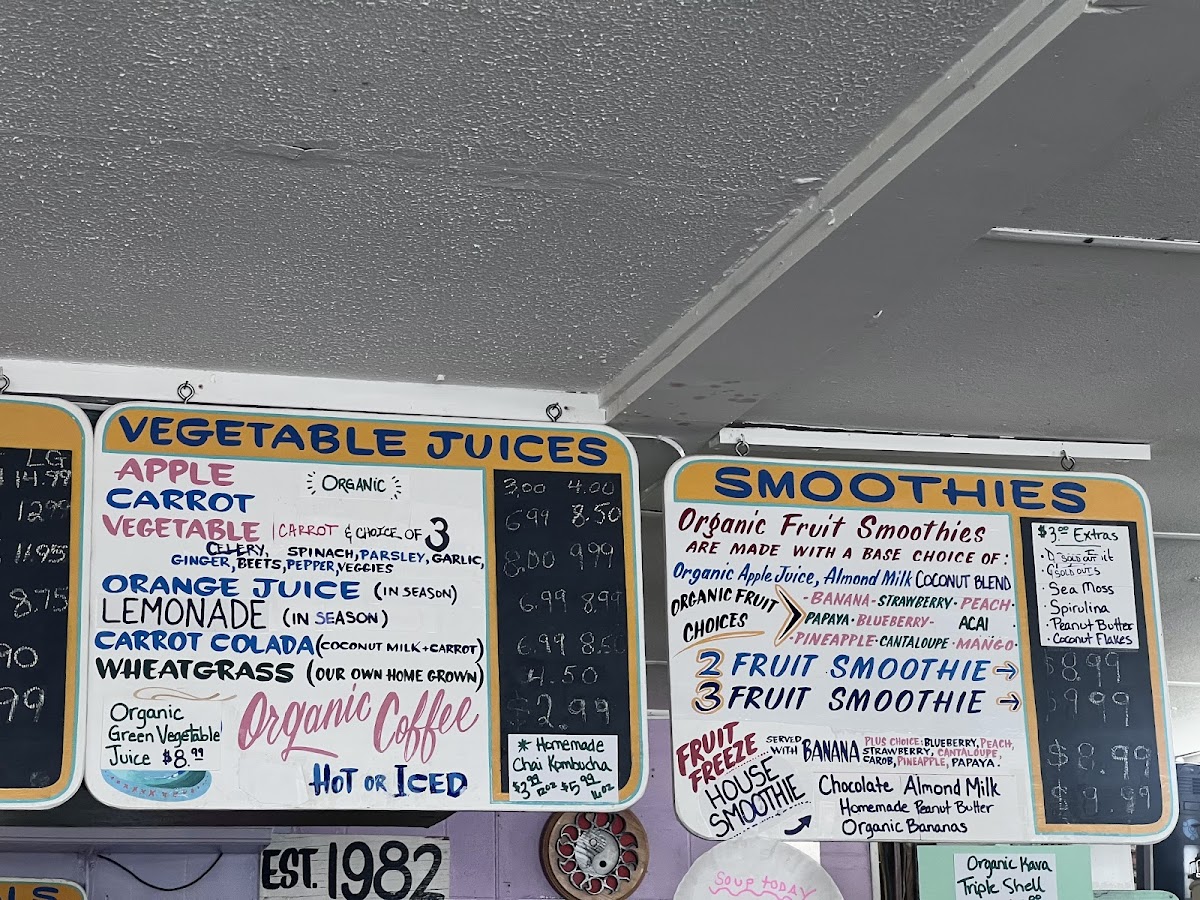 LG
14.99
1299
11.95
8.75
90
99
VEGETABLE JUICES
APPLE
ORGANIC
3.00 4.00
CARROT
6.99 8.50
VEGETABLE CARROT & CHOICE OF 3
CELERY, SPINACH, PARSLEY, GARLIC,
GINGER, BEETS, PEPPER, VEGGIES
8.00 9.99
ORANGE JUICE (IN SEASON)
6.99 8.99
LEMONADE (IN SEASON)
CARROT COLADA (COCONUT MILK+CARROT)
6.99 8.50
WHEATGRASS (OUR OWN HOME GROWN)
4.50
$2.99
Organic
Green Vegetable
Juice $8.99
Organic Coffee
HOT OR ICED
* Homemade
Chai Kombucha
$3.99 12oz $5.99 16oz
SMOOTHIES
Organic Fruit Smoothies
ARE MADE WITH A BASE CHOICE OF:
Organic Apple Juice, Almond Milk COCONUT BLEND
ORGANIC FRUIT
CHOICES
-BANANA-STRAWBERRY-PEACH-
PAPAYA-BLUEBERRY- ACAI
-PINEAPPLE-CANTALOUPE-MANGO-
2 FRUIT SMOOTHIE →
3 FRUIT SMOOTHIE →
$3.00 Extras
SOLD OUT
SOLD OUT
· Sea Moss
· Spirulina
· Peanut Butter
· Coconut Flakes
$8.99
9.99
FRUIT
FREEZE
SERVED
WITH BANANA
PLUS CHOICE: BLUEBERRY, PEACH,
STRAWBERRY, CANTALOUPE,
CAROB, PINEAPPLE, PAPAYA.
$8.99
HOUSE
SMOOTHIE
Chocolate Almond Milk
Homemade Peanut Butter
Organic Bananas
$9.99
EST. 1982
SOUP TODAY
Organic Kava
Triple Shell
LS